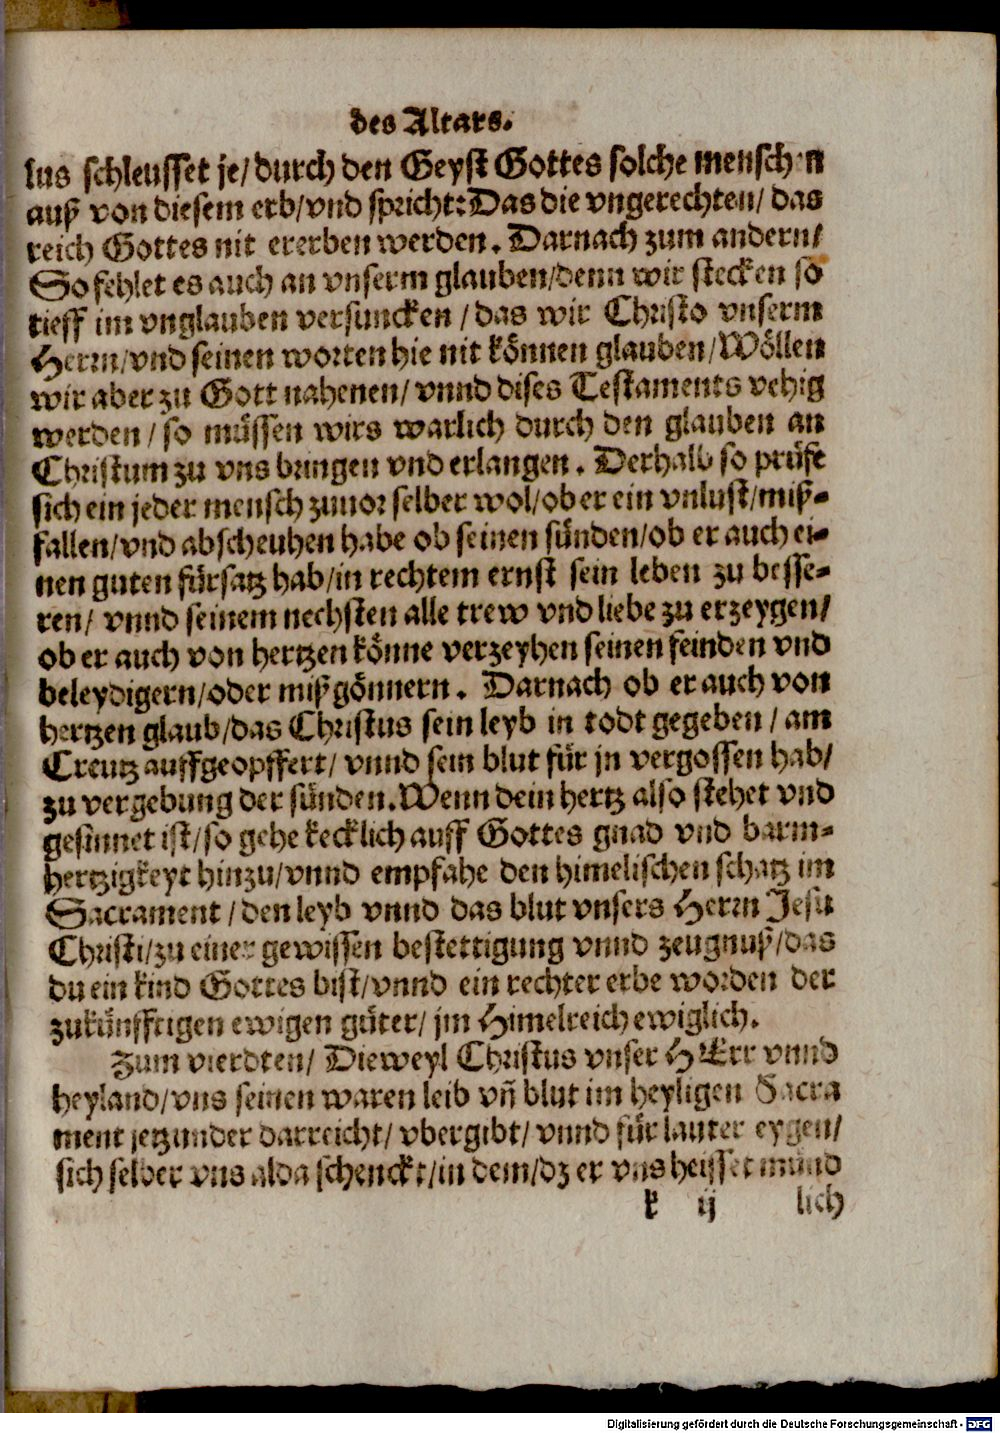 des Altars.
lus schleusset je/durch den Geyst Gottes solche menschen
auß von diesem erb/vnd spricht: Das die vngerechten/ das
reich Gottes nit ererben werden. Darnach zum andern/
So fehlet es auch an vnserm glauben/denn wir stecken so
tieff im vnglauben versuncken / das wir Christo vnserm
Herrn/vnd seinen worten hie nit können glauben/Wöllen
wir aber zu Gott nahenen/ vnnd dises Testaments vehig
werden / so müssen wirs warlich durch den glauben an
Christum zu vns bringen vnd erlangen. Derhalb so prüfe
sich ein jeder mensch zuuor selber wol/ob er ein vnlust/miß-
fallen/vnd abscheuhen habe ob seinen sünden/ob er auch ei-
nen guten fürsatz hab/in rechtem ernst sein leben zu besse-
ren/ vnnd seinem nechsten alle trew vnd liebe zu erzeygen/
ob er auch von hertzen könne verzeyhen seinen feinden vnd
beleydigern/oder mißgönnern. Darnach ob er auch von
hertzen glaub/das Christus sein leyb in todt gegeben / am
Creutz auffgeopffert/ vnnd sein blut für jn vergossen hab/
zu vergebung der sünden. Wenn dein hertz also stehet vnd
gesinnet ist/so gehe kecklich auff Gottes gnad vnd barm-
hertzigkeyt hinzu/vnnd empfahe den himelischen schatz im
Sacrament / den leyb vnnd das blut vnsers Herrn Jesu
Christi/zu einer gewissen bestettigung vnnd zeugnuß/das
du ein kind Gottes bist/vnnd ein rechter erbe worden der
zukünfftigen ewigen güter/ jm Himelreich ewiglich.
Zum vierdten/ Dieweyl Christus vnser HErr vnnd
heyland/vns seinen waren leib vñ blut im heyligen Sacra
ment jetzunder darreicht/ vbergibt/ vnnd für lauter eygen/
sich selber vns alda schenckt/in dem/dz er vns heisset münd
k ij lich
Digitalisierung gefördert durch die Deutsche Forschungsgemeinschaft - DFG